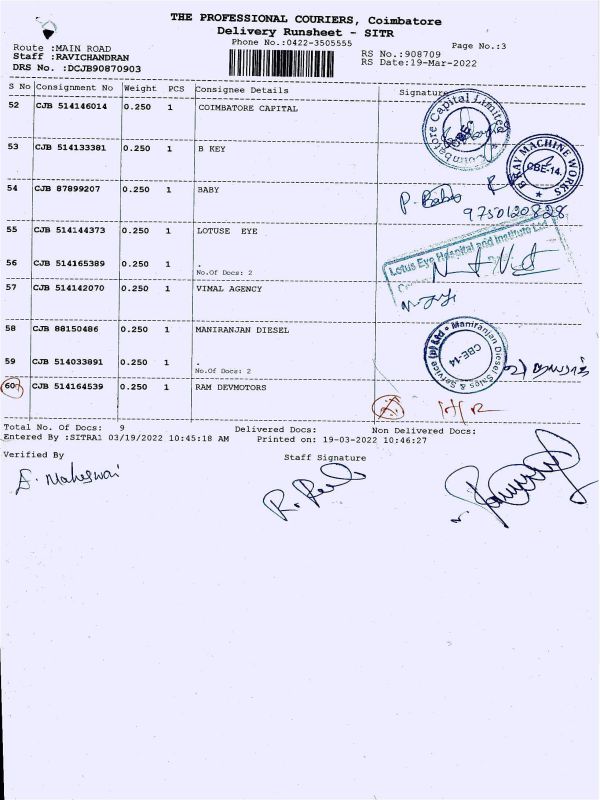 THE PROFESSIONAL COURIERS, Coimbatore
Delivery Runsheet - SITR
Phone No.:0422-3505555
Page No.:3
Route :MAIN ROAD
Staff :RAVICHANDRAN
DRS No. :DCJB90870903
RS No.:908709
RS Date:19-Mar-2022
S No Consignment No Weight PCS Consignee Details Signature
52 CJB 514146014 0.250 1 COIMBATORE CAPITAL
Coimbatore Capital Limited
CBE
53 CJB 514133381 0.250 1 B KEY
MACHINE WORKS
CBE-14.
54 CJB 87899207 0.250 1 BABY
P. Babu
9750120828
55 CJB 514144373 0.250 1 LOTUSE EYE
Lotus Eye Hospital and Institute Ltd
56 CJB 514165389 0.250 1 .
No.Of Docs: 2
57 CJB 514142070 0.250 1 VIMAL AGENCY
58 CJB 88150486 0.250 1 MANIRANJAN DIESEL
Maniranjan Diesel Sales & Service (p) Ltd
CBE-14
59 CJB 514033891 0.250 1 .
No.Of Docs: 2
60 CJB 514164539 0.250 1 RAM DEVMOTORS
Total No. Of Docs: 9 Delivered Docs: Non Delivered Docs:
Entered By :SITRA1 03/19/2022 10:45:18 AM Printed on: 19-03-2022 10:46:27
Verified By
Staff Signature
S. Maheswari